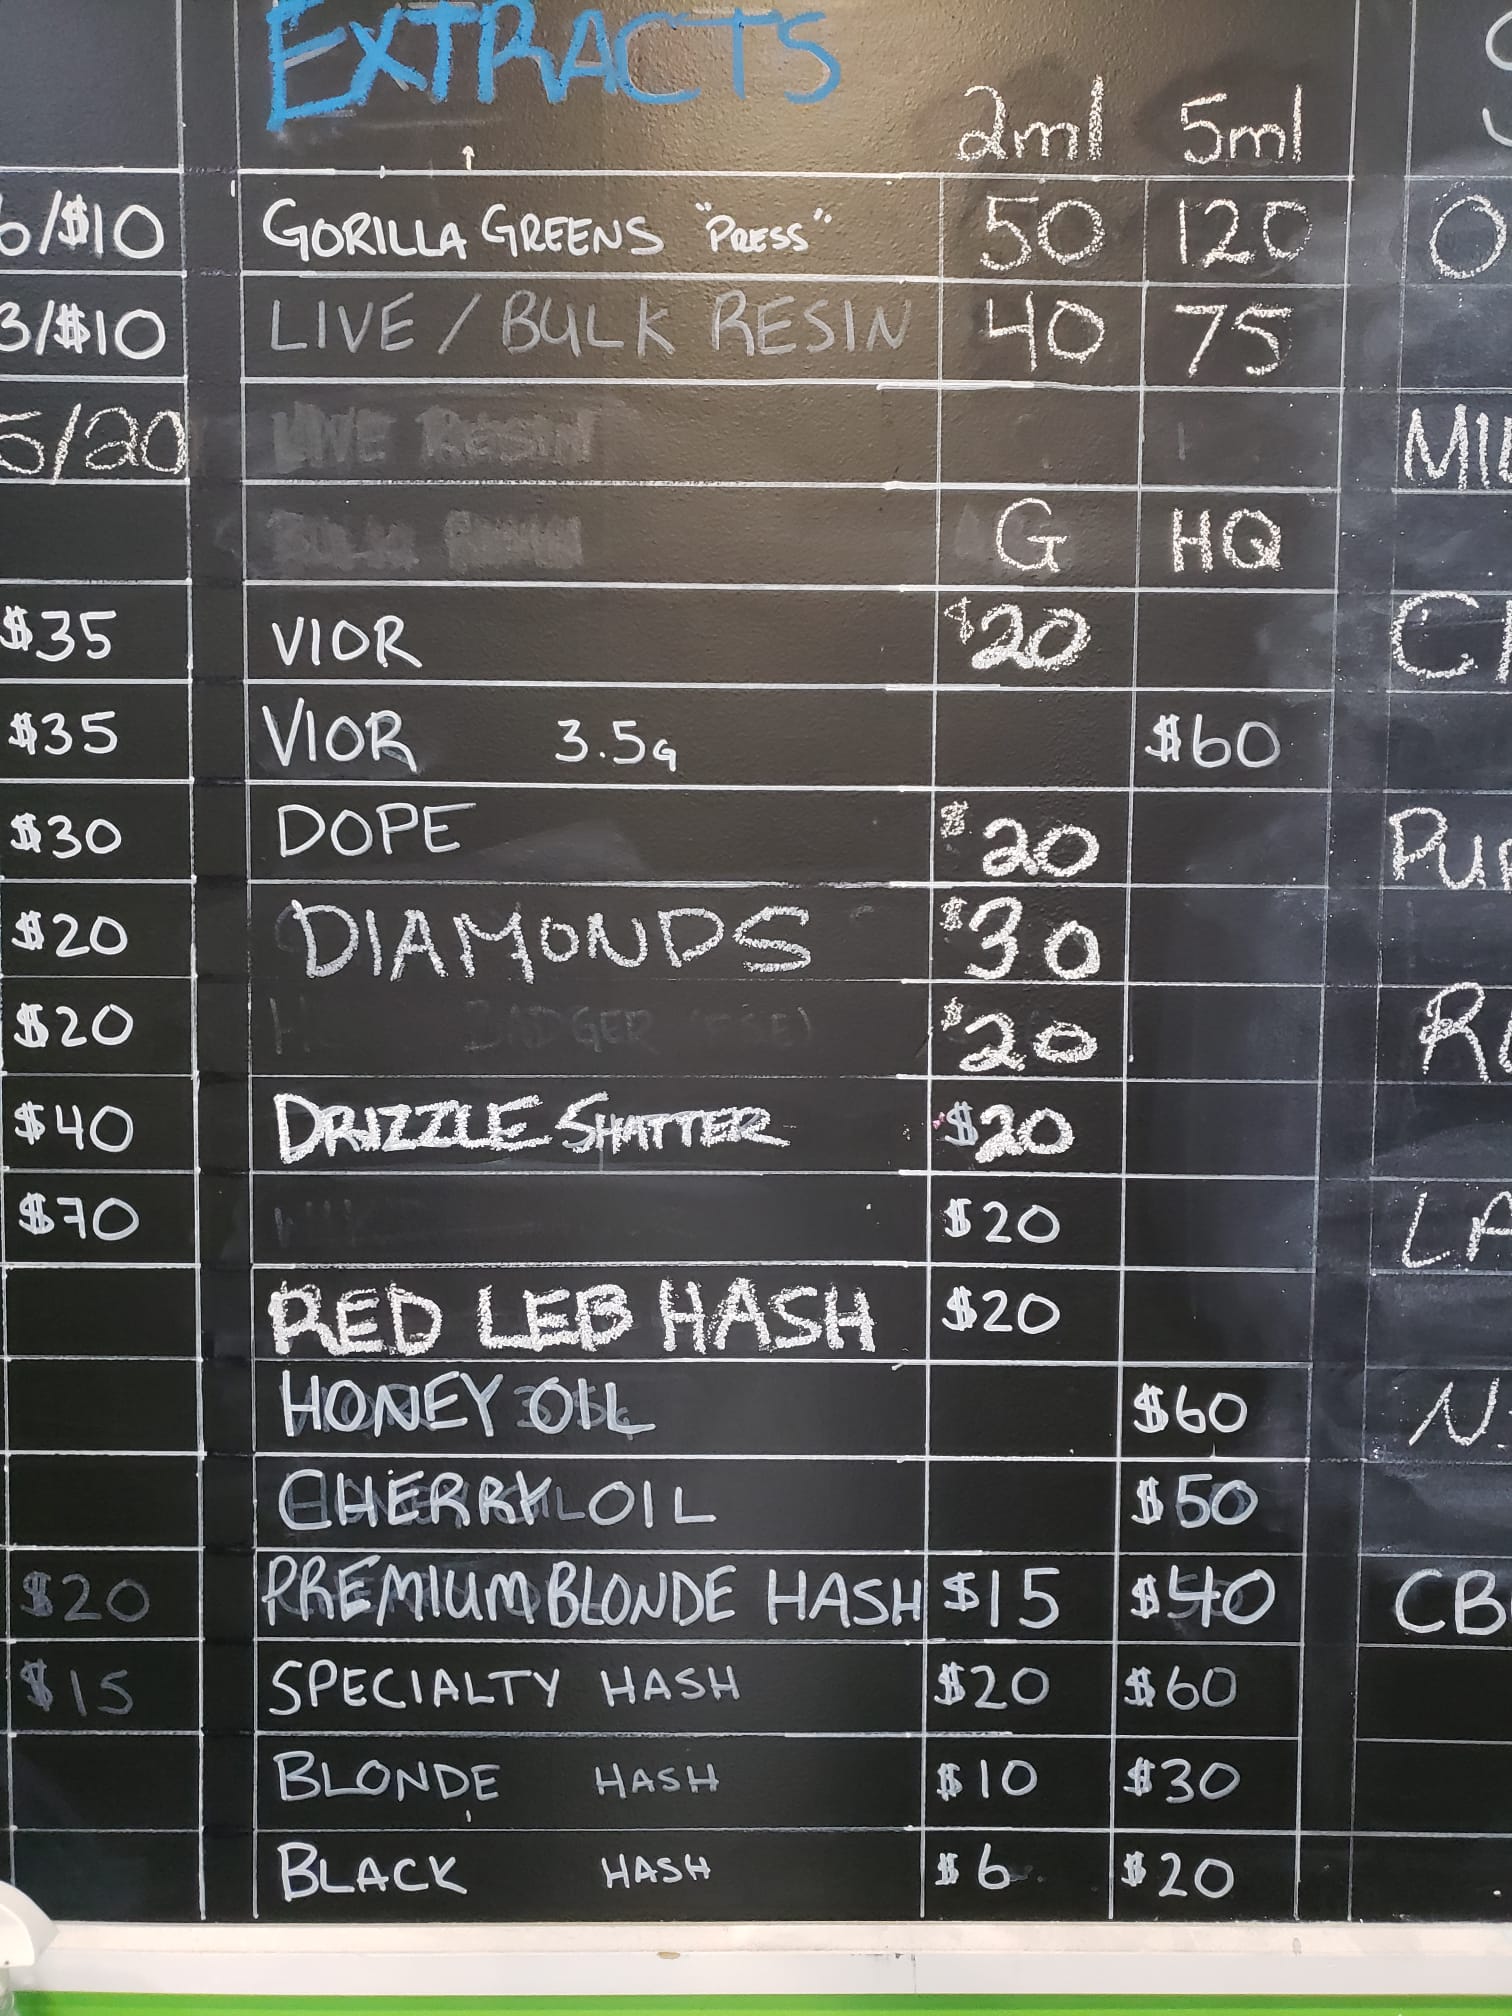 EXTRACTS
2ml 5ml
6/$10 GORILLA GREENS "PRESS" 50 120
3/$10 LIVE / BULK RESIN 40 75
5/20 LIVE RESIN MIL
G HQ
$35 VIOR $20
$35 VIOR 3.5G $60
$30 DOPE $20 PUR
$20 DIAMONDS $30
$20 BADGER $20
$40 DRIZZLE SHATTER $20
$70 $20 LA
RED LEB HASH $20
HONEY OIL $60 N
CHERRY OIL $50
$20 PREMIUM BLONDE HASH $15 $40 CB
$15 SPECIALTY HASH $20 $60
BLONDE HASH $10 $30
BLACK HASH $6 $20